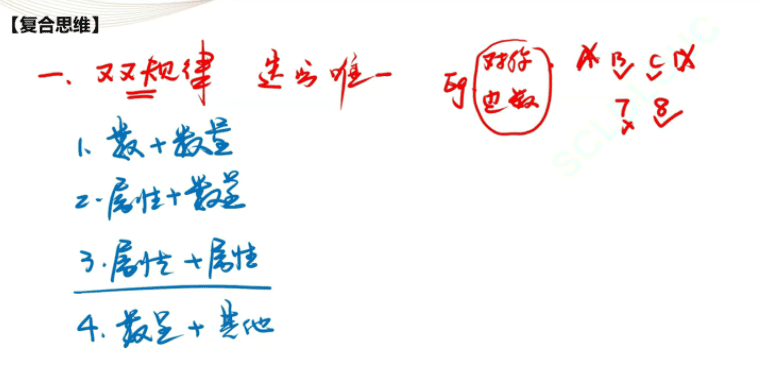 【复合思维】
一、双规律 选出唯一 Eg 对称 A B C D
面数 7 8
1、数+数量
2.属性+数量
3.属性+属性
4.数量+其他